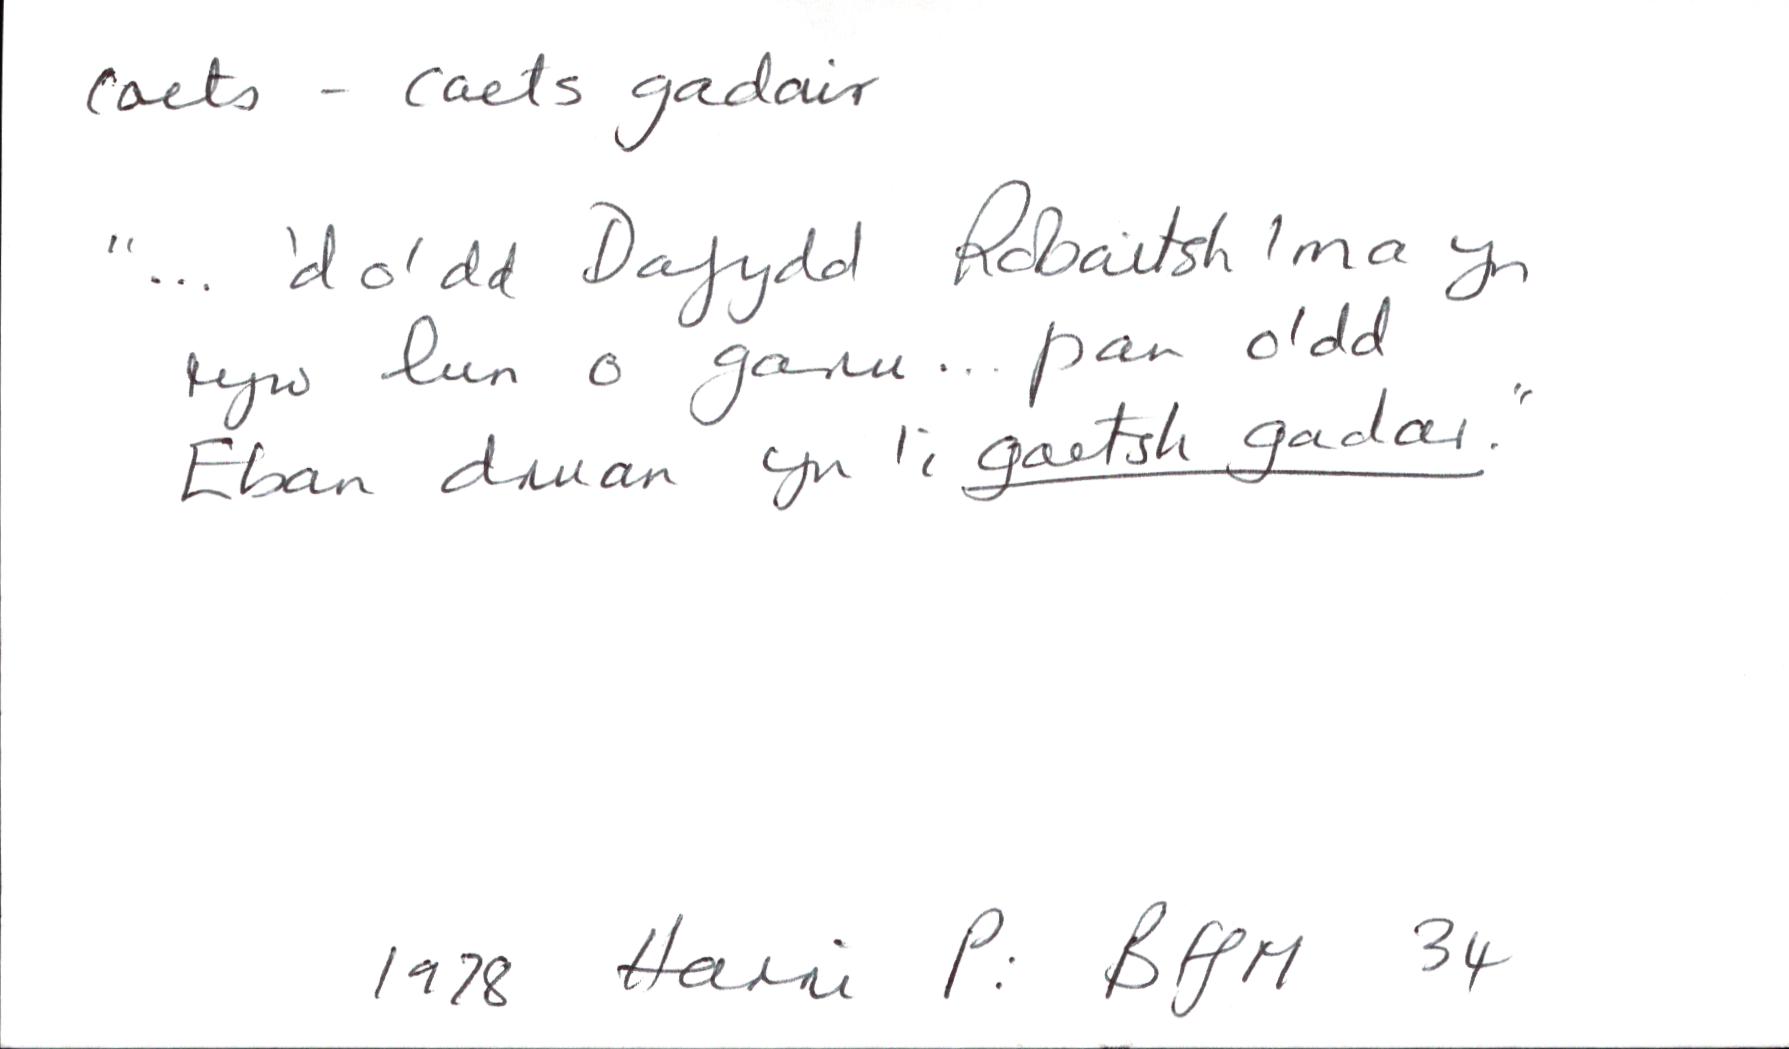 caets - caets gadair
"... 'do'dd Dafydd Robaitsh 'ma yn
ryw lun o garu... pan o'dd
Eban druan yn 'i gaetsh gadar."
1978 Harri P: BFfM 34